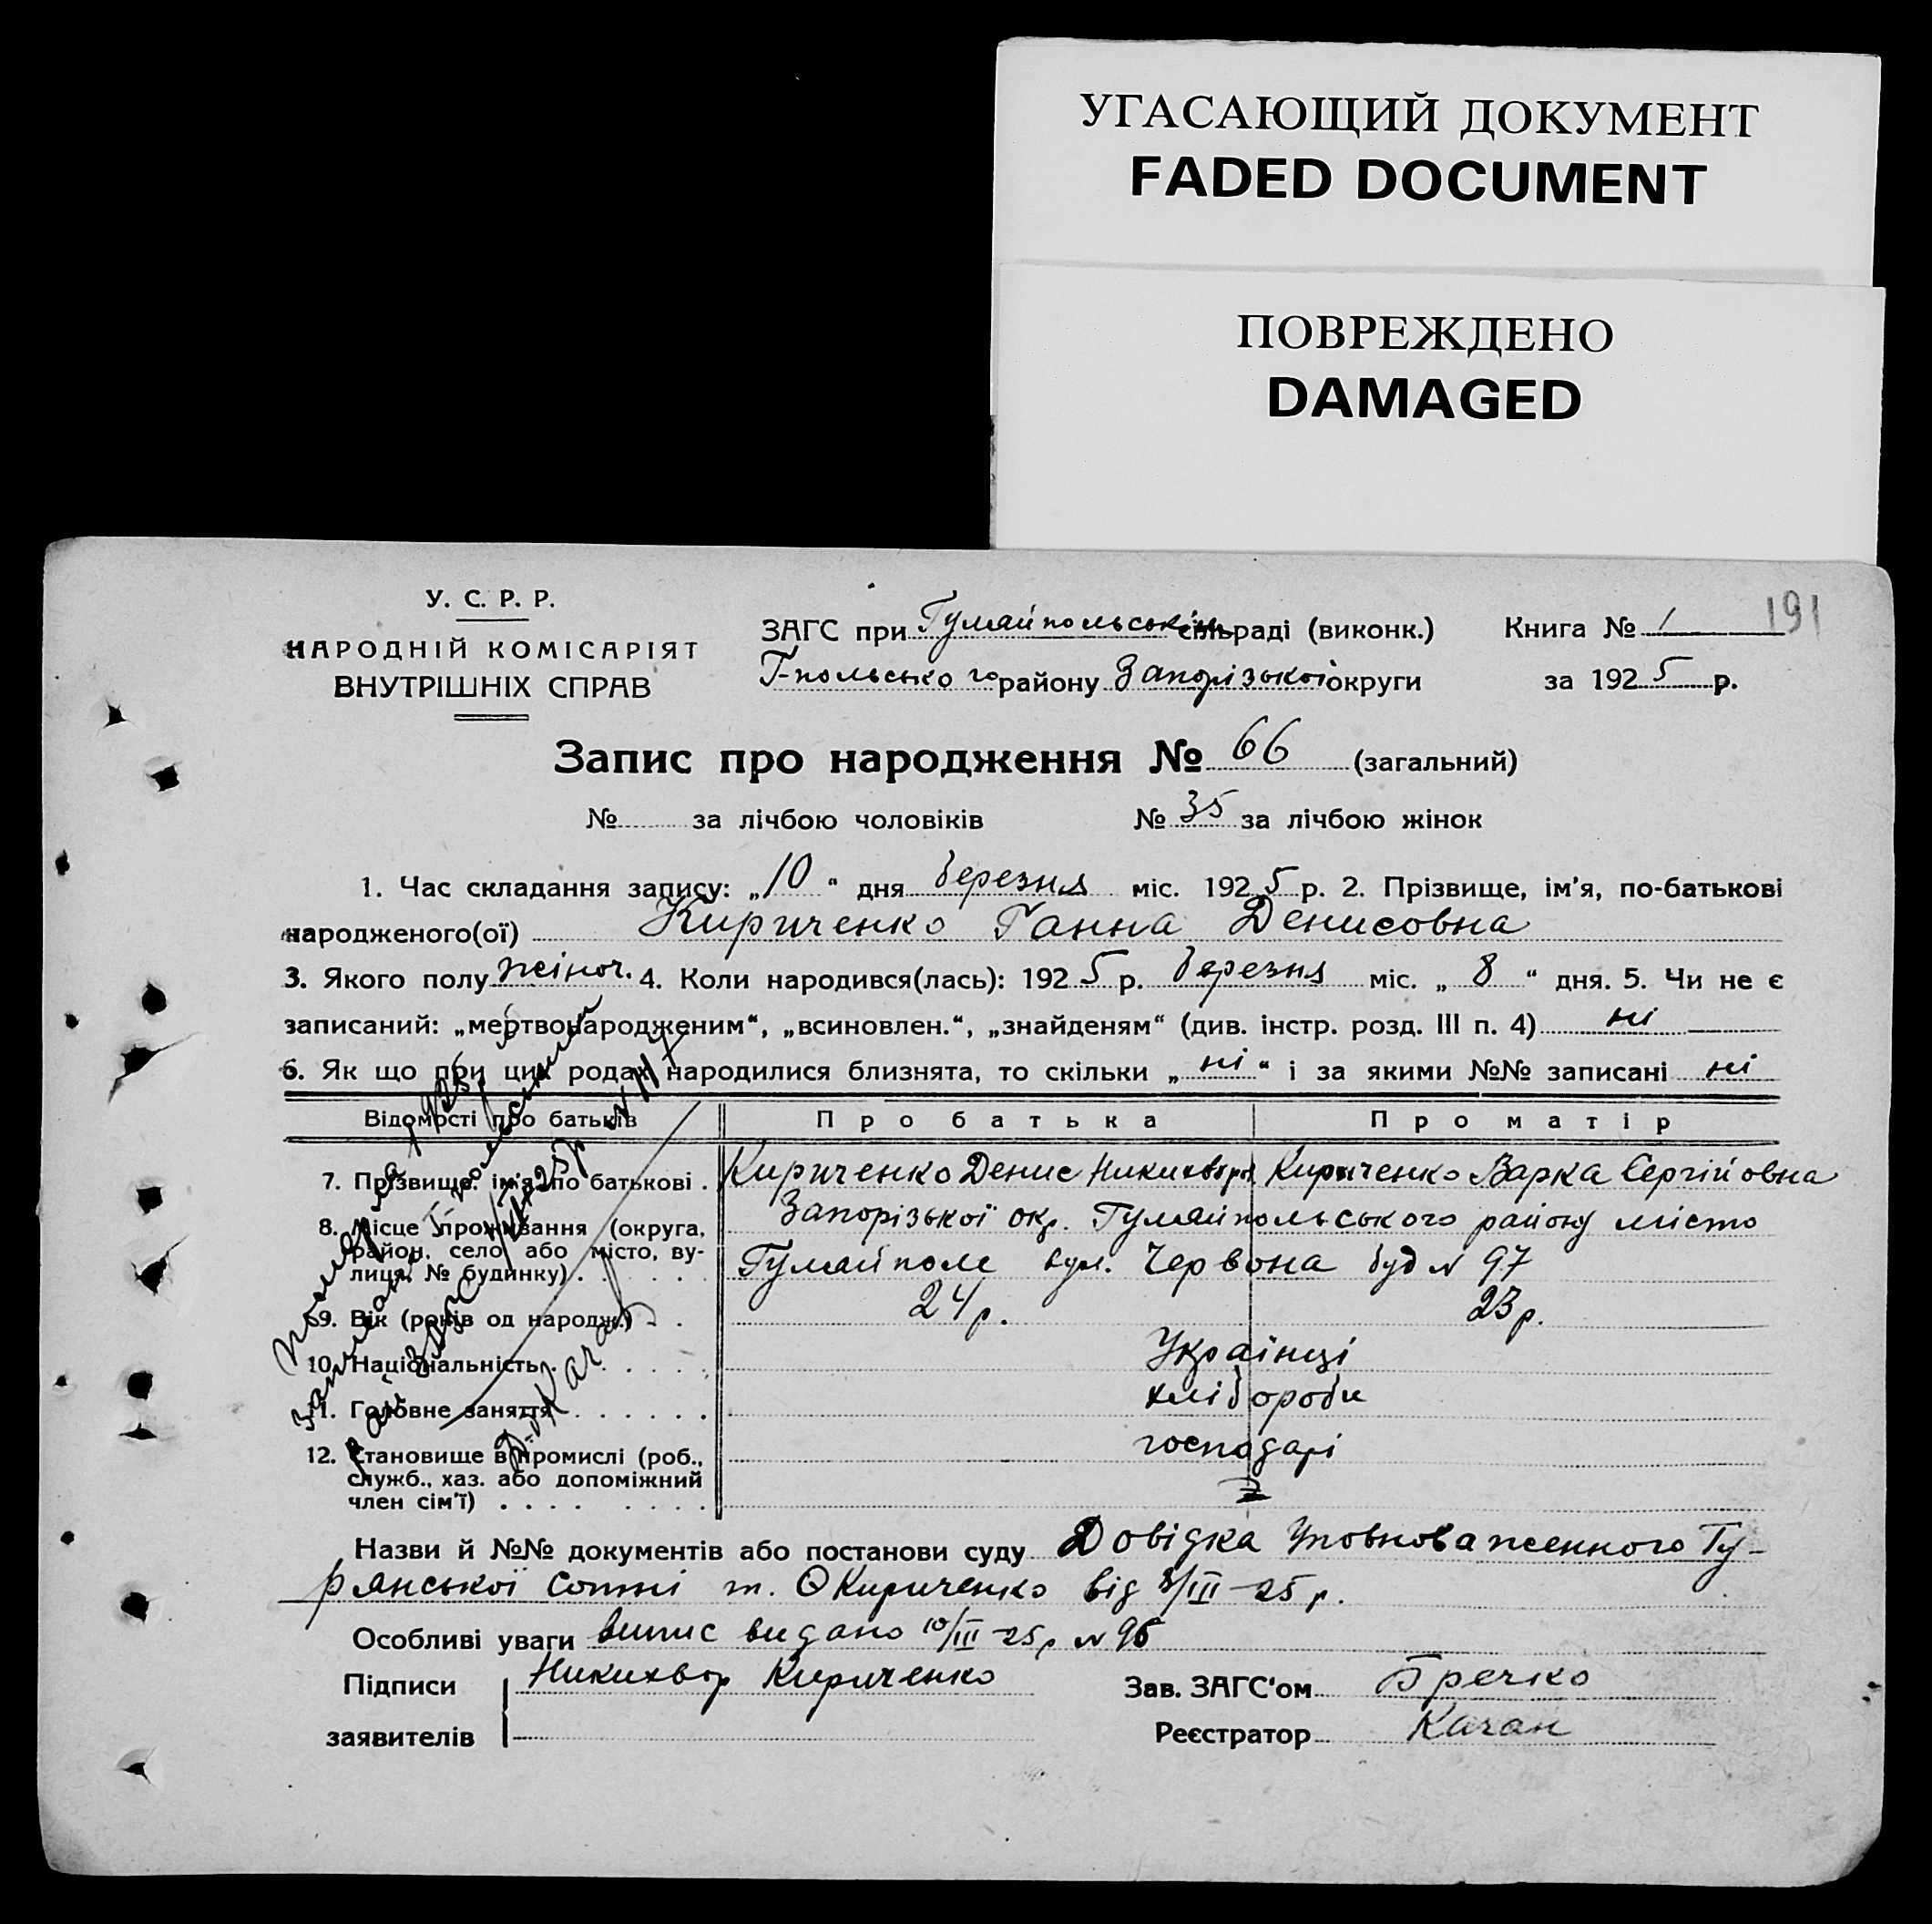 УГАСАЮЩИЙ ДОКУМЕНТ
FADED DOCUMENT
ПОВРЕЖДЕНО
DAMAGED
191
У. С. Р. Р.
НАРОДНІЙ КОМІСАРІЯТ
ВНУТРІШНІХ СПРАВ
ЗАГС при Гуляйпольськім сільраді (виконк.)
Г-польсько го району Запорізької округи
Книга № 1
за 1925 р.
Запис про народження № 66 (загальний)
№ за лічбою чоловіків № 35 за лічбою жінок
1. Час складання запису: „10“ дня березня міс. 1925 р. 2. Прізвище, ім'я, по-батькові
народженого(ої) Кириченко Ганна Денисовна
3. Якого полу жіноч. 4. Коли народився(лась): 1925 р. березня міс. „8“ дня. 5. Чи не є
записаний: „мертвонародженим“, „всиновлен.“, „знайденям“ (див. інстр. розд. III п. 4) ні
6. Як що при цих родах народилися близнята, то скільки „ні“ і за якими №№ записані ні
Відомості про батьків Про батька Про матір
7. Прізвище, ім'я, по батькові . Кириченко Денис Никихвор Кириченко Варка Сергійовна
8. Місце проживання (округа, район, село або місто, ву-лиця, № будинку) . Запорізької окр. Гуляйпольського району місто
Гуляйполе вул. Червона буд № 97
9. Вік (років од народж.) . . 24 р. 23 р.
10. Національність . Українці
11. Головне заняття . хлібороби
12. Становище в промислі (роб., служб., хаз. або допоміжний член сім'ї) . господарі
Померла 1925
записано Г-польським
рай ЗАГС
25 р. № 117
Качан
Назви й №№ документів або постанови суду Довідка Уповноваженного Гу-
рянської сотні т. О Кириченко від 8/III-25 р.
Особливі уваги випис видано 10/III-25 р № 96
Підписи заявителів Никихвор Кириченко
Зав. ЗАГС'ом Гречко
Реєстратор Качан